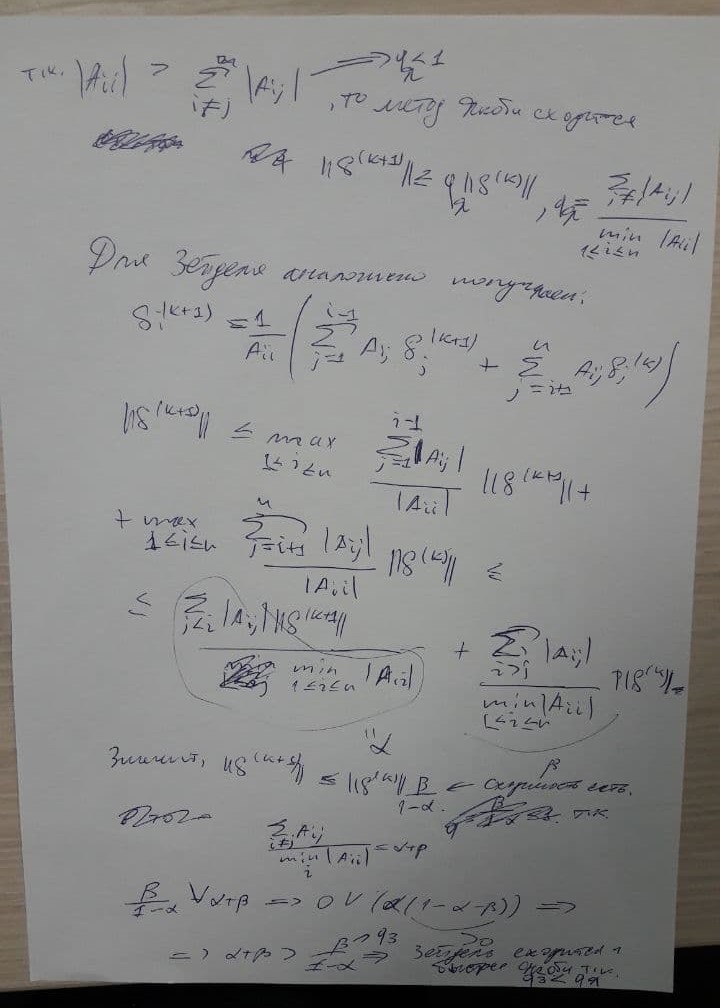 т.к. |Aii| > ∑_{i≠j}^{n} |Aij| ⟹ q_я < 1
, то метод Якоби сходится
||δ^(k+1)|| ≤ q_я ||δ^(k)||, q_я = ∑_{i≠j} |Aij| / min_{1≤i≤n} |Aii|
Для Зейделя аналогично получаем:
δ_i^(k+1) = 1/Aii ( ∑_{j=1}^{i-1} Aij δ_j^(k+1) + ∑_{j=i+1}^{n} Aij δ_j^(k) )
||δ^(k+1)|| ≤ max_{1≤i≤n} ∑_{j=1}^{i-1} |Aij| / |Aii| ||δ^(k+1)|| +
+ max_{1≤i≤n} ∑_{j=i+1}^{n} |Aij| / |Aii| ||δ^(k)|| ≤
≤ ∑_{j<i} |Aij| ||δ^(k+1)|| / min_{1≤i≤n} |Aii| + ∑_{i>j} |Aij| / min_{1≤i≤n} |Aii| ||δ^(k)|| =
"α
β
Значит, ||δ^(k+1)|| ≤ ||δ^(k)|| β/(1-α) ← сходимость есть,
т.к.
∑_{i≠j} Aij / min_i |Aii| = α+β
β/(1-α) ∨ α+β => 0 ∨ (α(1-α-β)) =>
>0
=> α+β > β/(1-α) → q_з => Зейдель сходится
быстрее Якоби т.к.
q_з < q_я